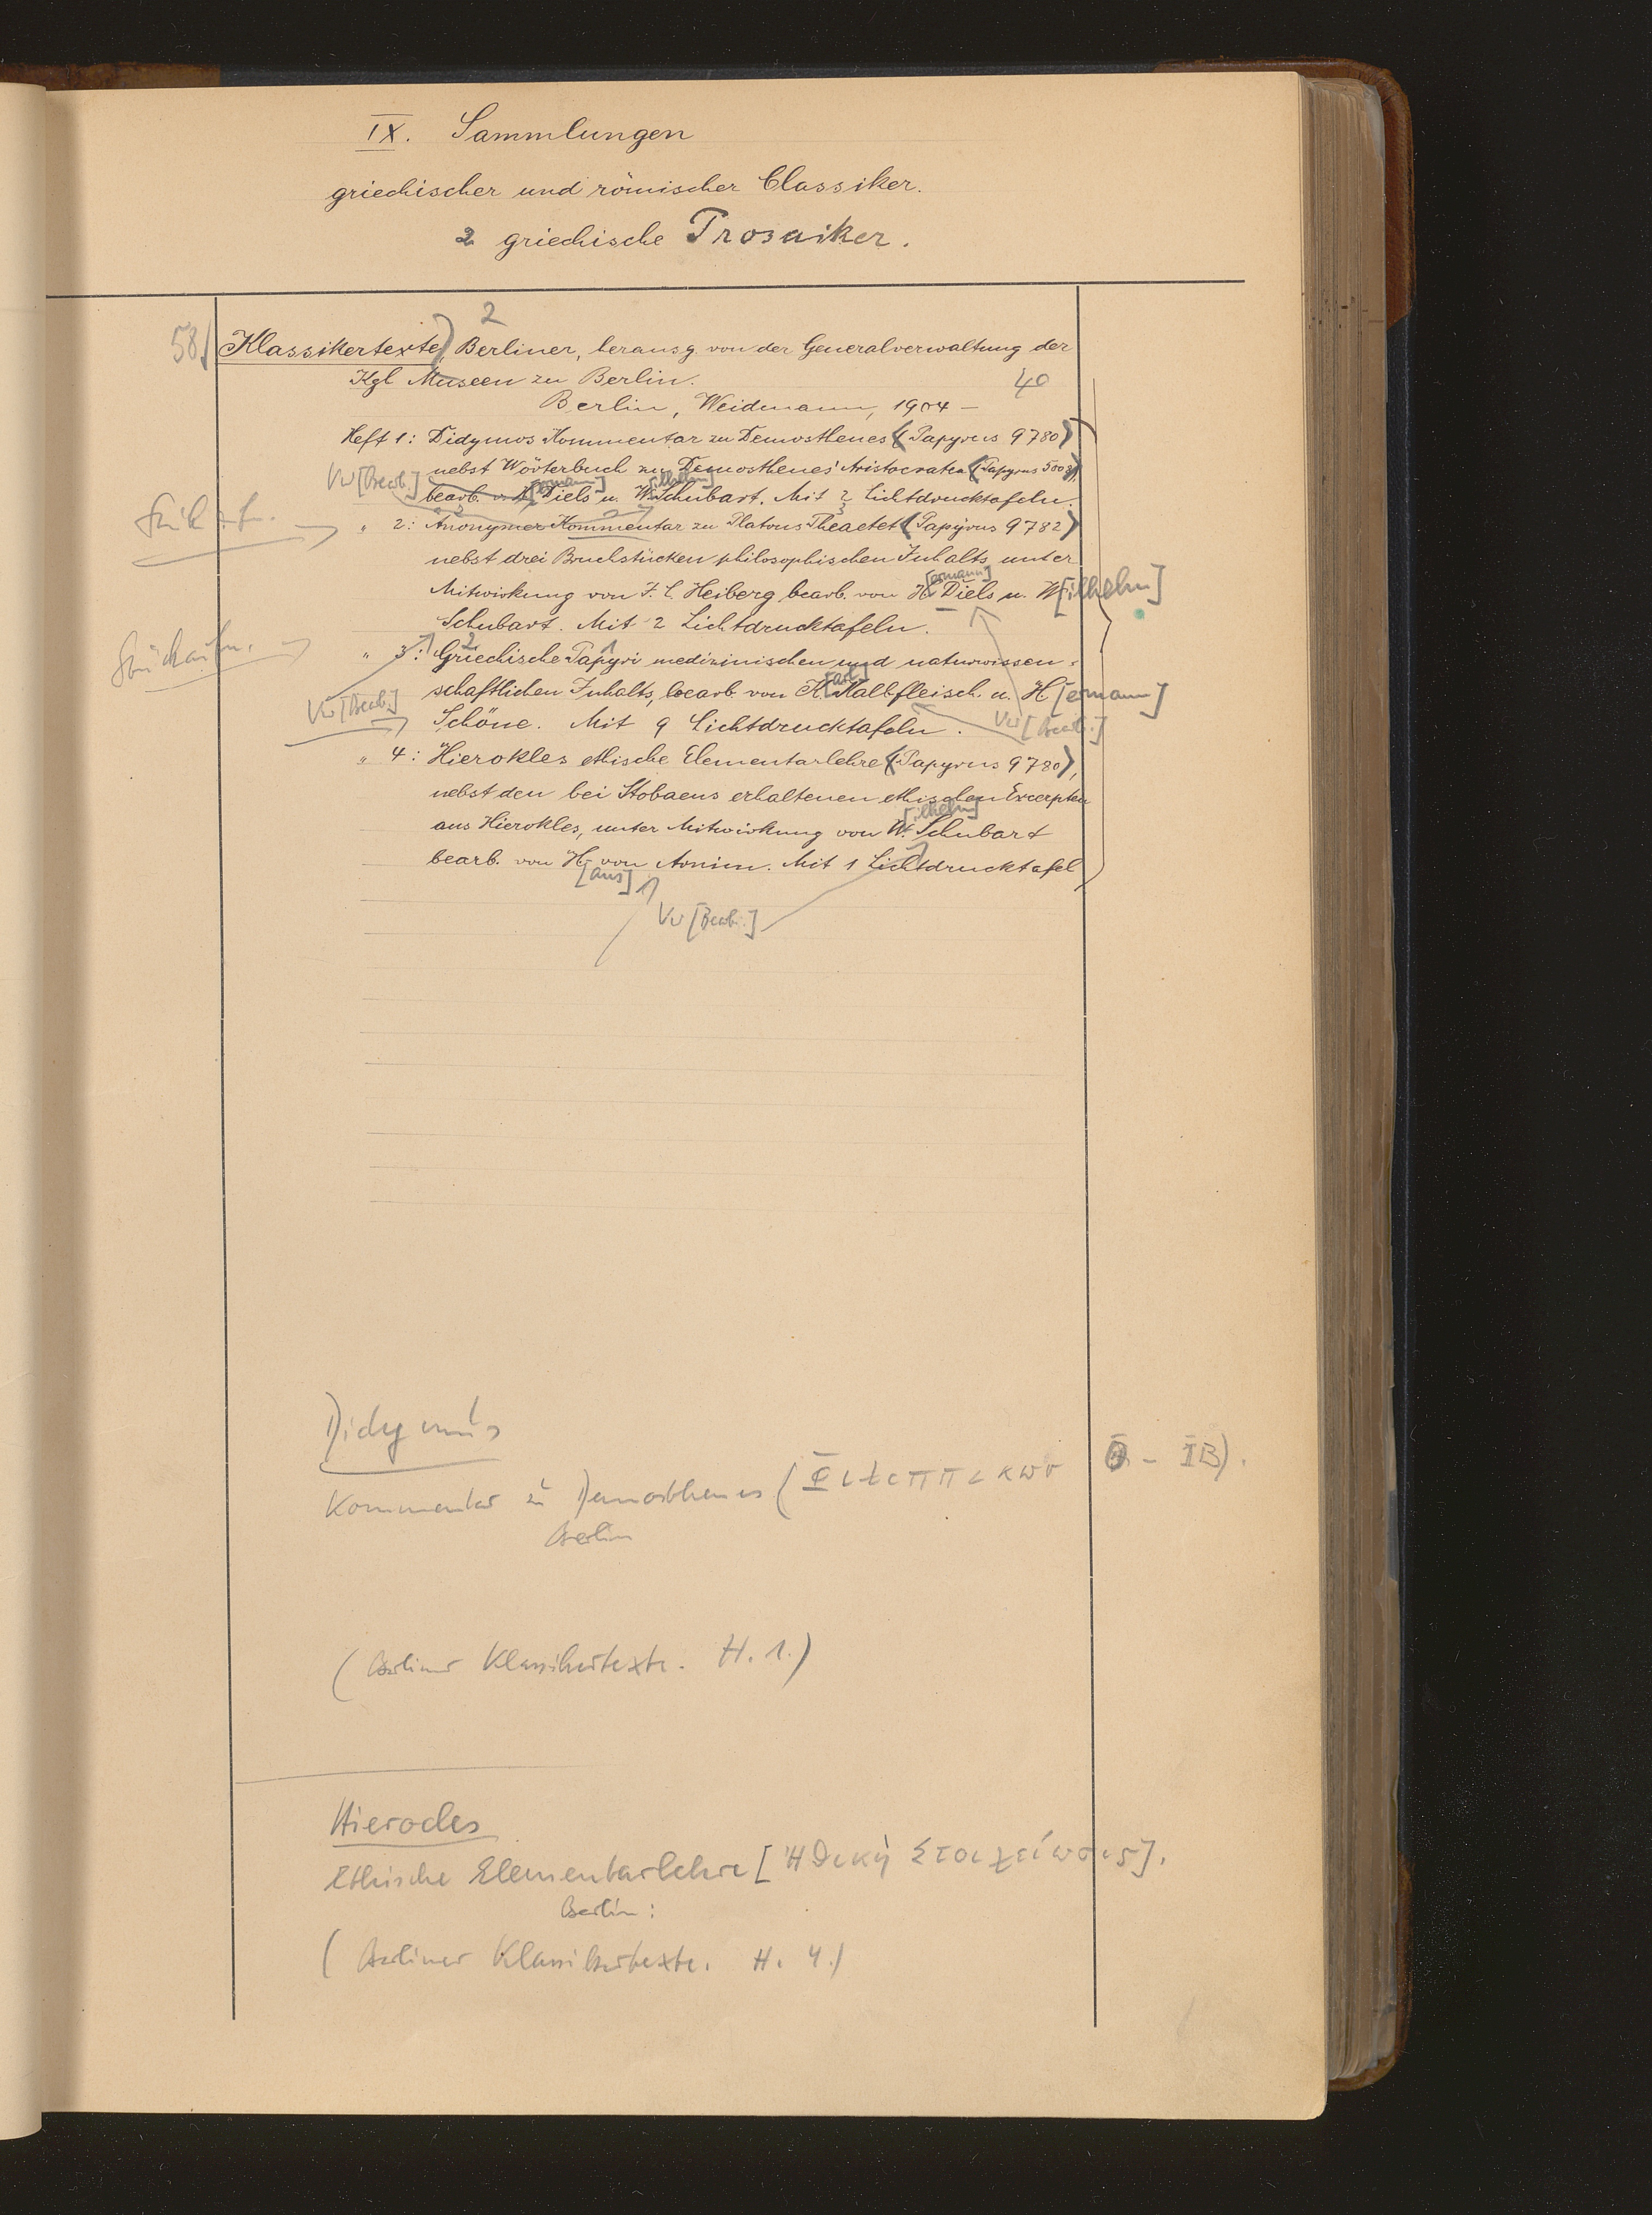 IX. Sammlungen
griechischer und römischer Classiker.
2 griechische Prosaiker.
2
58) Klassikertexte, Berliner, herausg. von der Generalverwaltung der
Kgl Museen zu Berlin. 40
Berlin, Weidmann, 1904 –
Heft 1: Didymos Kommentar zu Demosthenes (Papyrus 9780)
nebst Wörterbuch zu Demosthenes' Aristocratea (Papyrus 5008),
Vw [Bearb.]
bearb. v. H[ermann] Diels u. W[ilhelm] Schubart. Mit 2 Lichtdrucktafeln.
" 2: Anonymer Kommentar zu Platons Theaetet (Papyrus 9782)
nebst drei Bruchstücken philosophischen Inhalts unter
Mitwirkung von J. L. Heiberg bearb. von H[ermann] Diels u. W[ilhelm]
Schubart. Mit 2 Lichtdrucktafeln.
Stückaufn.
" 3: Griechische Papyri medizinischen und naturwissen-
schaftlichen Inhalts, bearb. von K[arl] Kalbfleisch u. H[ermann]
Vw [Bearb.]
Schöne. Mit 9 Lichtdrucktafeln. Vw [Bearb.]
" 4: Hierokles ethische Elementarlehre (Papyrus 9780),
nebst den bei Stobaeus erhaltenen ethischen Excerpten
aus Hierokles, unter Mitwirkung von W[ilhelm] Schubart
bearb. von H[ans] von Arnim. Mit 1 Lichtdrucktafel
Vw [Bearb.]
Didymus
Kommentar zu Demosthenes
Berlin
(Berliner Klassikertexte. H. 1.)
Hierocles
Ethische Elementarlehre [Ἠθικὴ Στοιχείωσις].
Berlin:
(Berliner Klassikertexte. H. 4.)